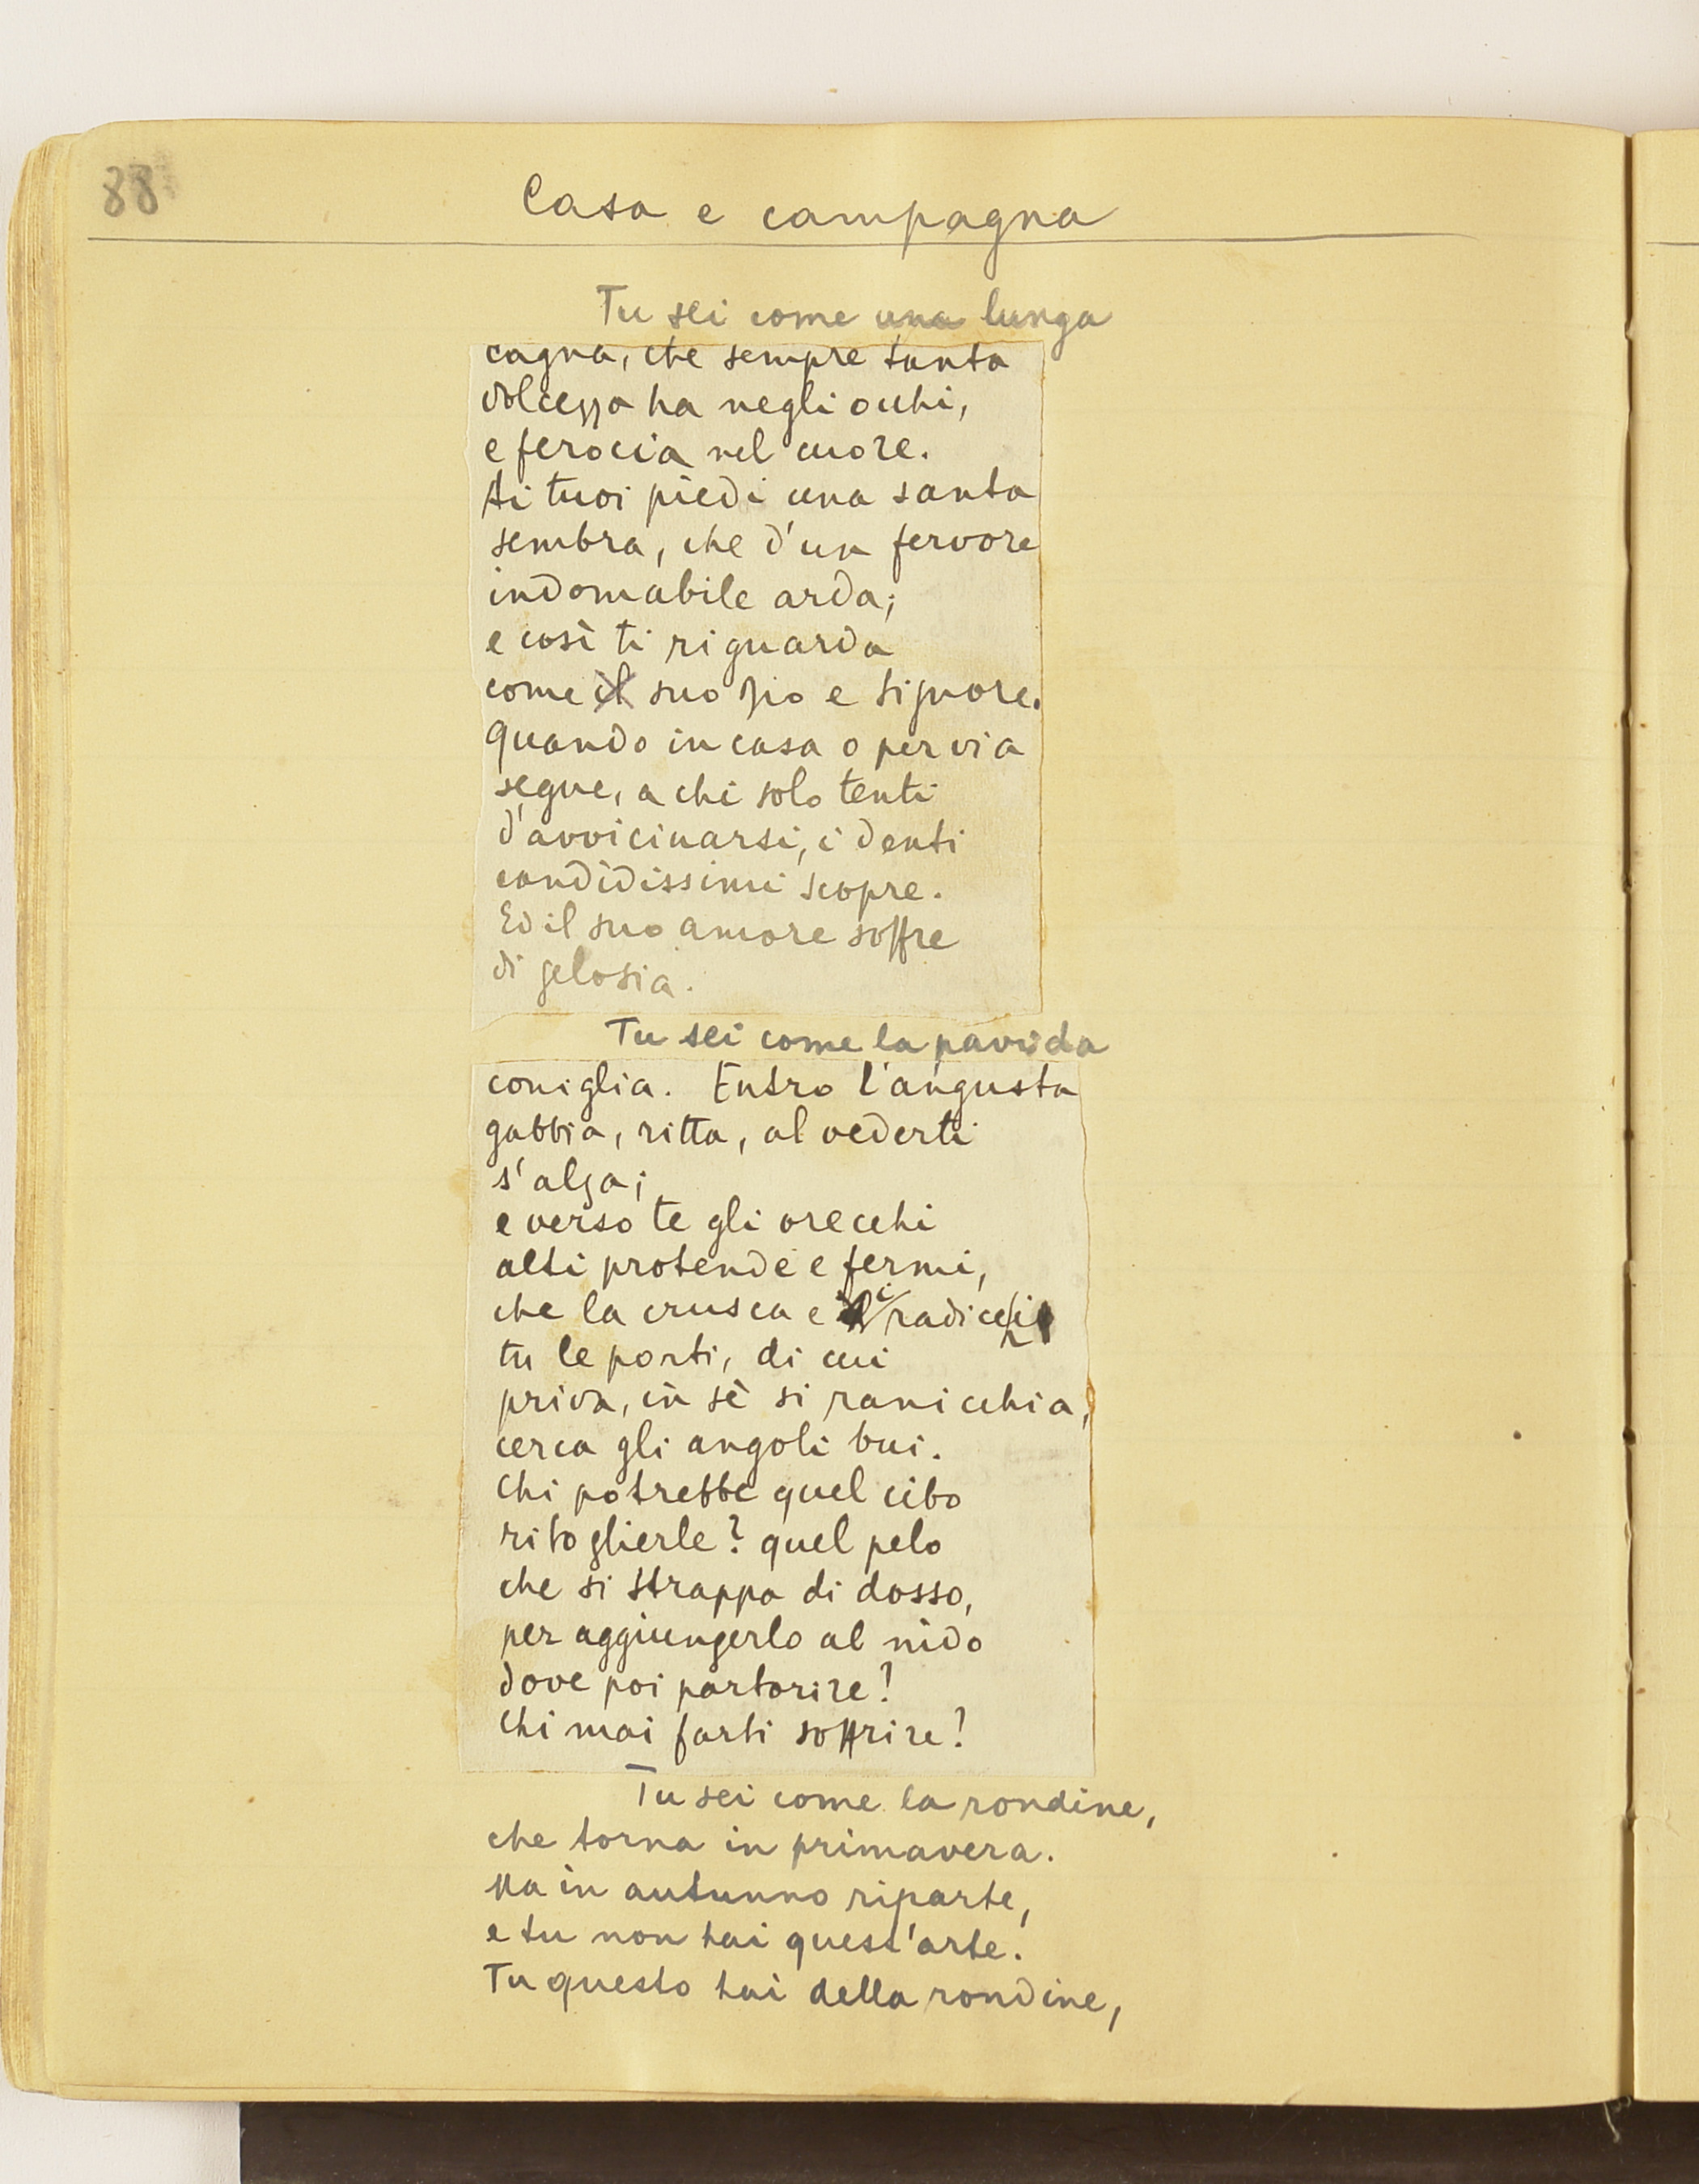 88
Casa e campagna
Tu sei come una lunga
cagna, che sempre tanta
dolcezza ha negli occhi,
e ferocia nel cuore.
Ai tuoi piedi una santa
sembra, che d'un fervore
indomabile arda;
e così ti riguarda
come il suo Dio e Signore.
Quando in casa o per via
segue, a chi solo tenti
d'avvicinarsi, i denti
candidissimi scopre.
Ed il suo amore soffre
di gelosia.
Tu sei come la pavida
coniglia. Entro l'angusta
gabbia, ritta, al vederti
s'alza;
e verso te gli orecchi
alti protende e fermi,
che la crusca e i radicchi
tu le porti, di cui
priva, in sè si rannicchia,
cerca gli angoli bui.
Chi potrebbe quel cibo
ritoglierle? quel pelo
che si strappa di dosso,
per aggiungerlo al nido
dove poi partorire?
Chi mai farti soffrire?
Tu sei come la rondine,
che torna in primavera.
Ma in autunno riparte,
e tu non hai quest'arte.
Tu questo hai della rondine,